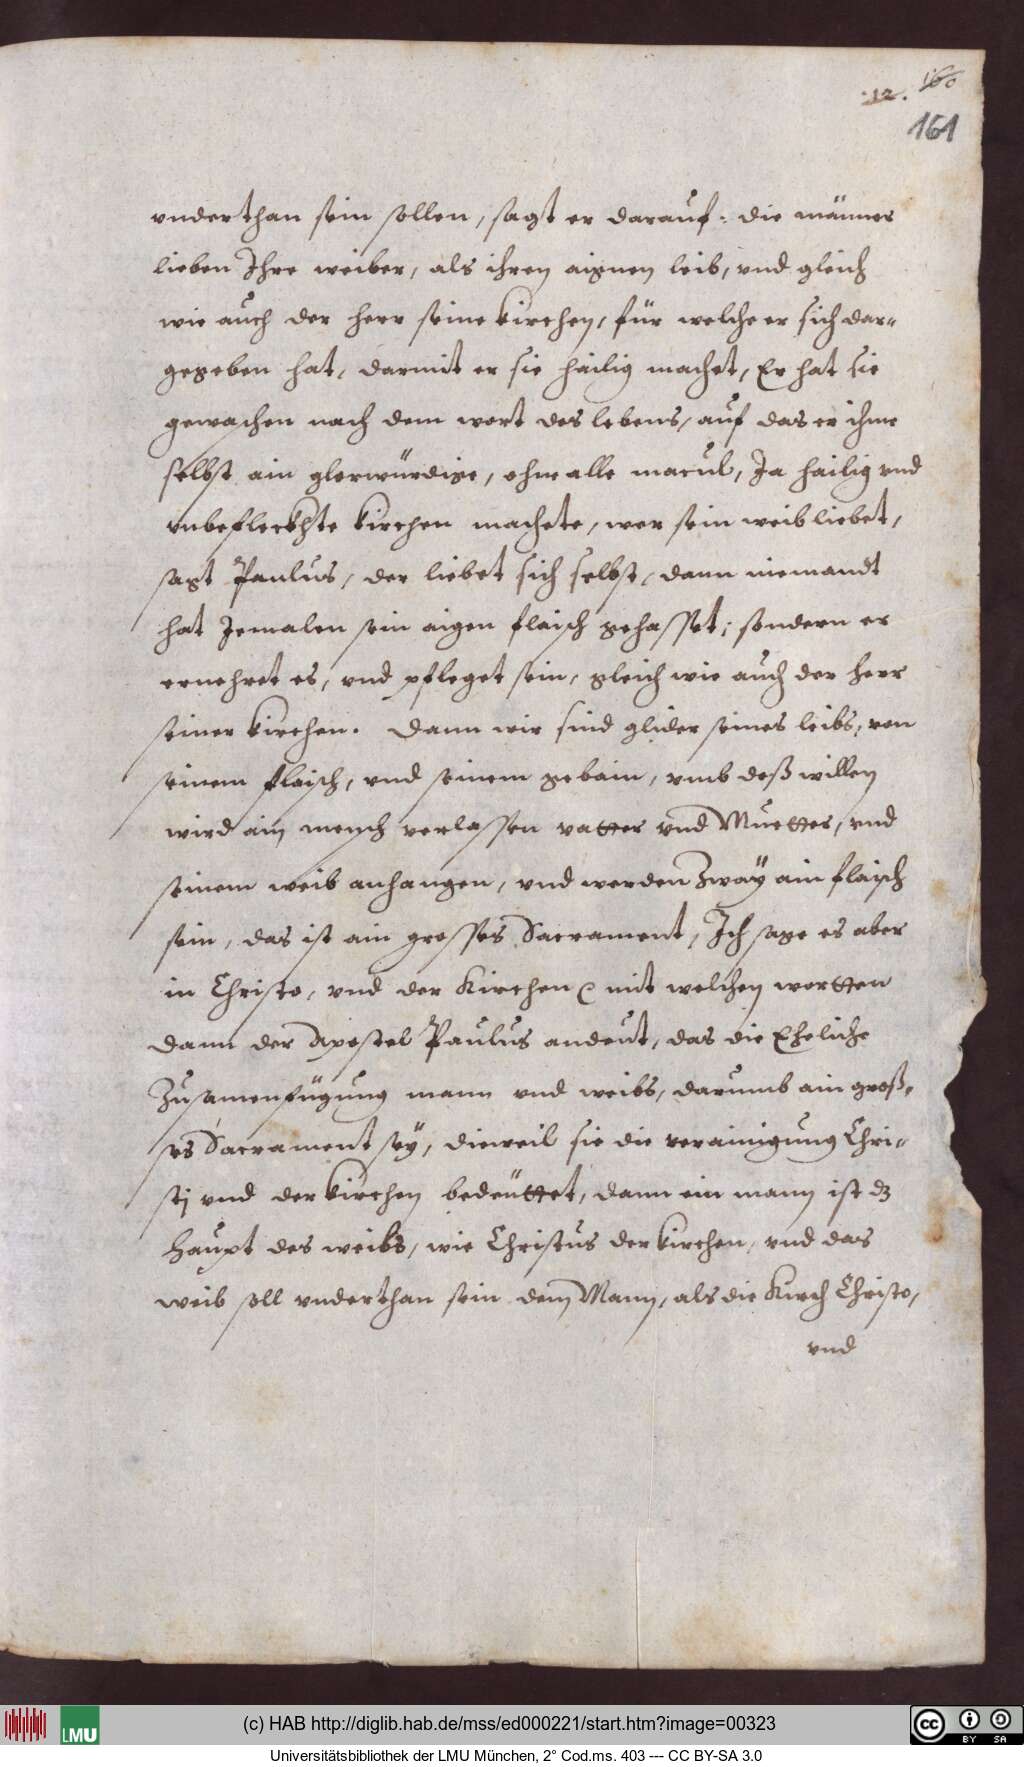 .12. 160
161
vnderthan sein sollen, sagt er darauf: die männer
lieben Ihre weiber, als ihren aignen leib, vnd gleich
wie auch der herr seine kirchen, für welche er sich dar-
gegeben hat, darmit er sie hailig machet, Er hat sie
gewaschen nach dem wort des lebens, auf das er ihme
selbst ain glorwürdige, ohne alle macul, Ja hailig vnd
vnbefleckhte kirchen machete, wer sein weib liebet,
sagt Paulus, der liebet sich selbst, dann niemandt
hat Jemalen sein aigen flaisch gehasset; sondern er
ernehret es, vnd pfleget sein, gleich wie auch der herr
seiner kirchen. Dann wir sind glider seines leibs, von
seinem flaisch, vnd seinem gebain, vmb deß willen
wird ain mensch verlassen vatter vnd Muetter, vnd
seinem weib anhangen, vnd werden Zway ain flaisch
sein, das ist ain grosses Sacrament, Ich sage es aber
in Christo, vnd der Kirchen mit welchen wortten
dann der Apostel Paulus andeut, das die Eheliche
Zusamenfügung mann vnd weibs, darumb ain groß-
ses Sacrament sey, dieweil sie die verainigung Chri-
sti vnd der kirchen bedeüttet, dann ein mann ist dz
Haupt des weibs, wie Christus der kirchen, vnd das
weib soll vnderthan sein dem Mann, als die Kirch Christo,
vnd
LMU
(c) HAB http://diglib.hab.de/mss/ed000221/start.htm?image=00323
cc BY SA
Universitätsbibliothek der LMU München, 2° Cod.ms. 403 --- CC BY-SA 3.0